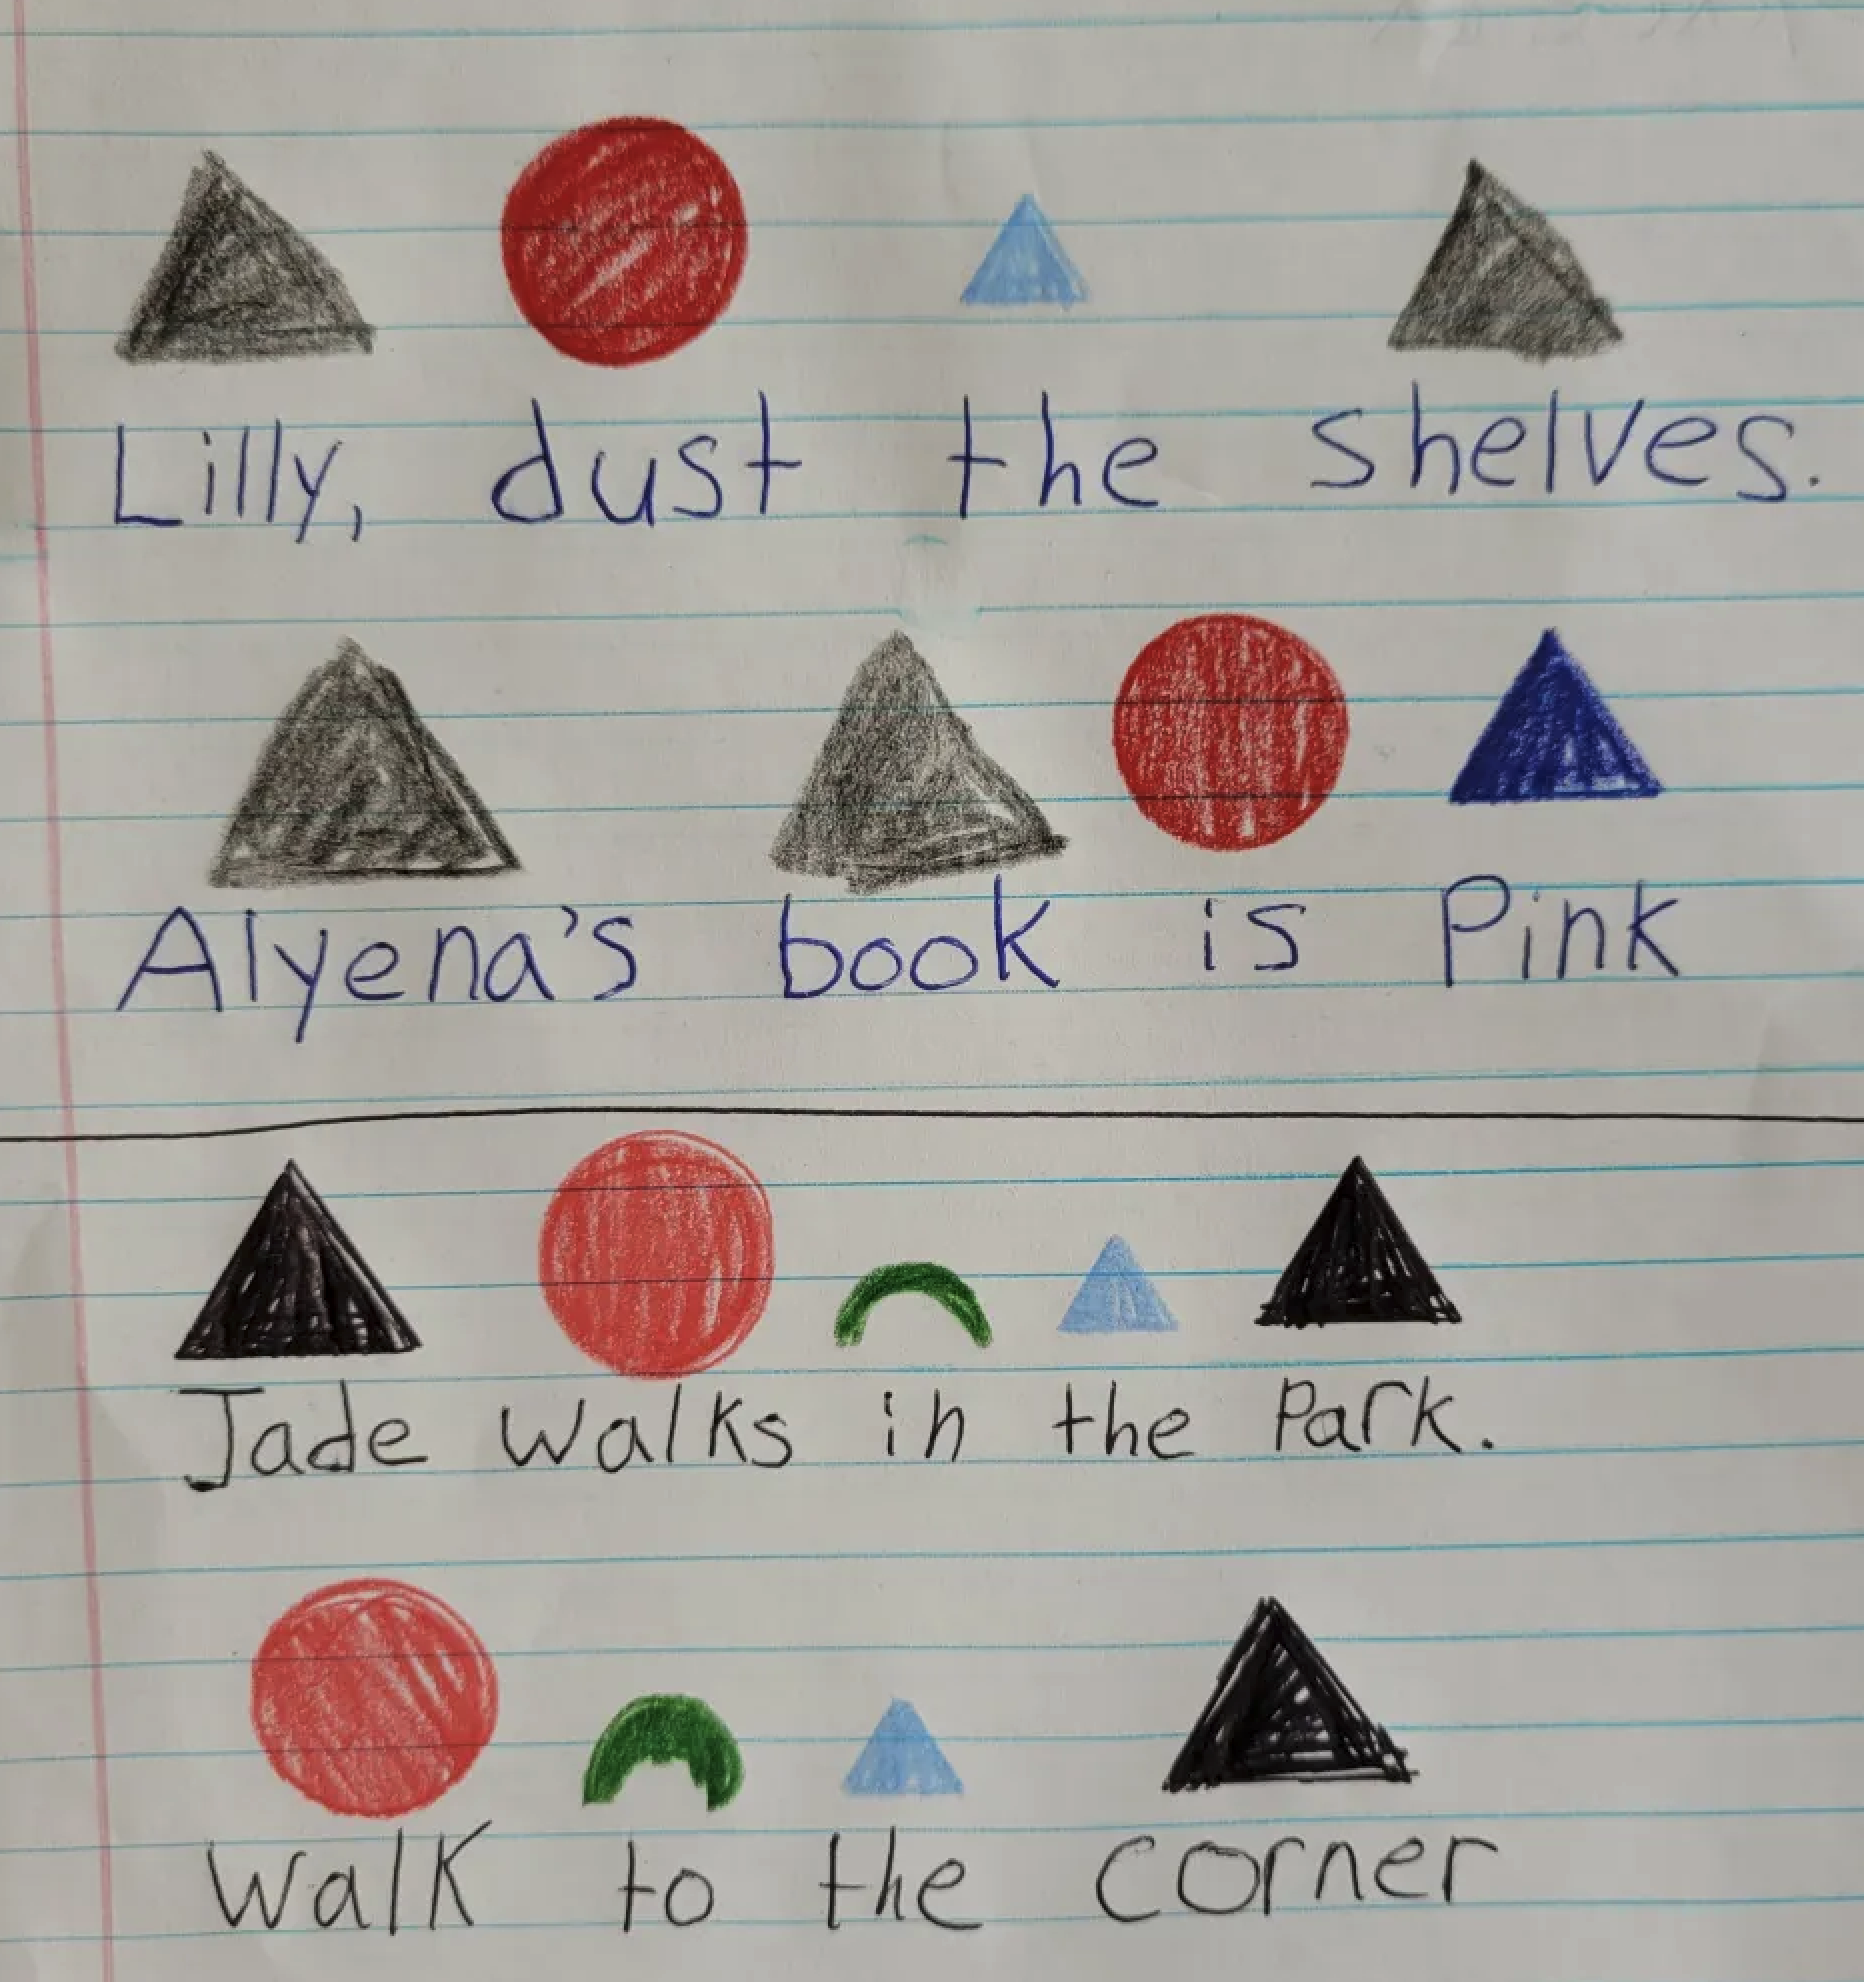 Lilly, dust the shelves.
Alyena's book is Pink
Jade walks in the Park.
Walk to the corner